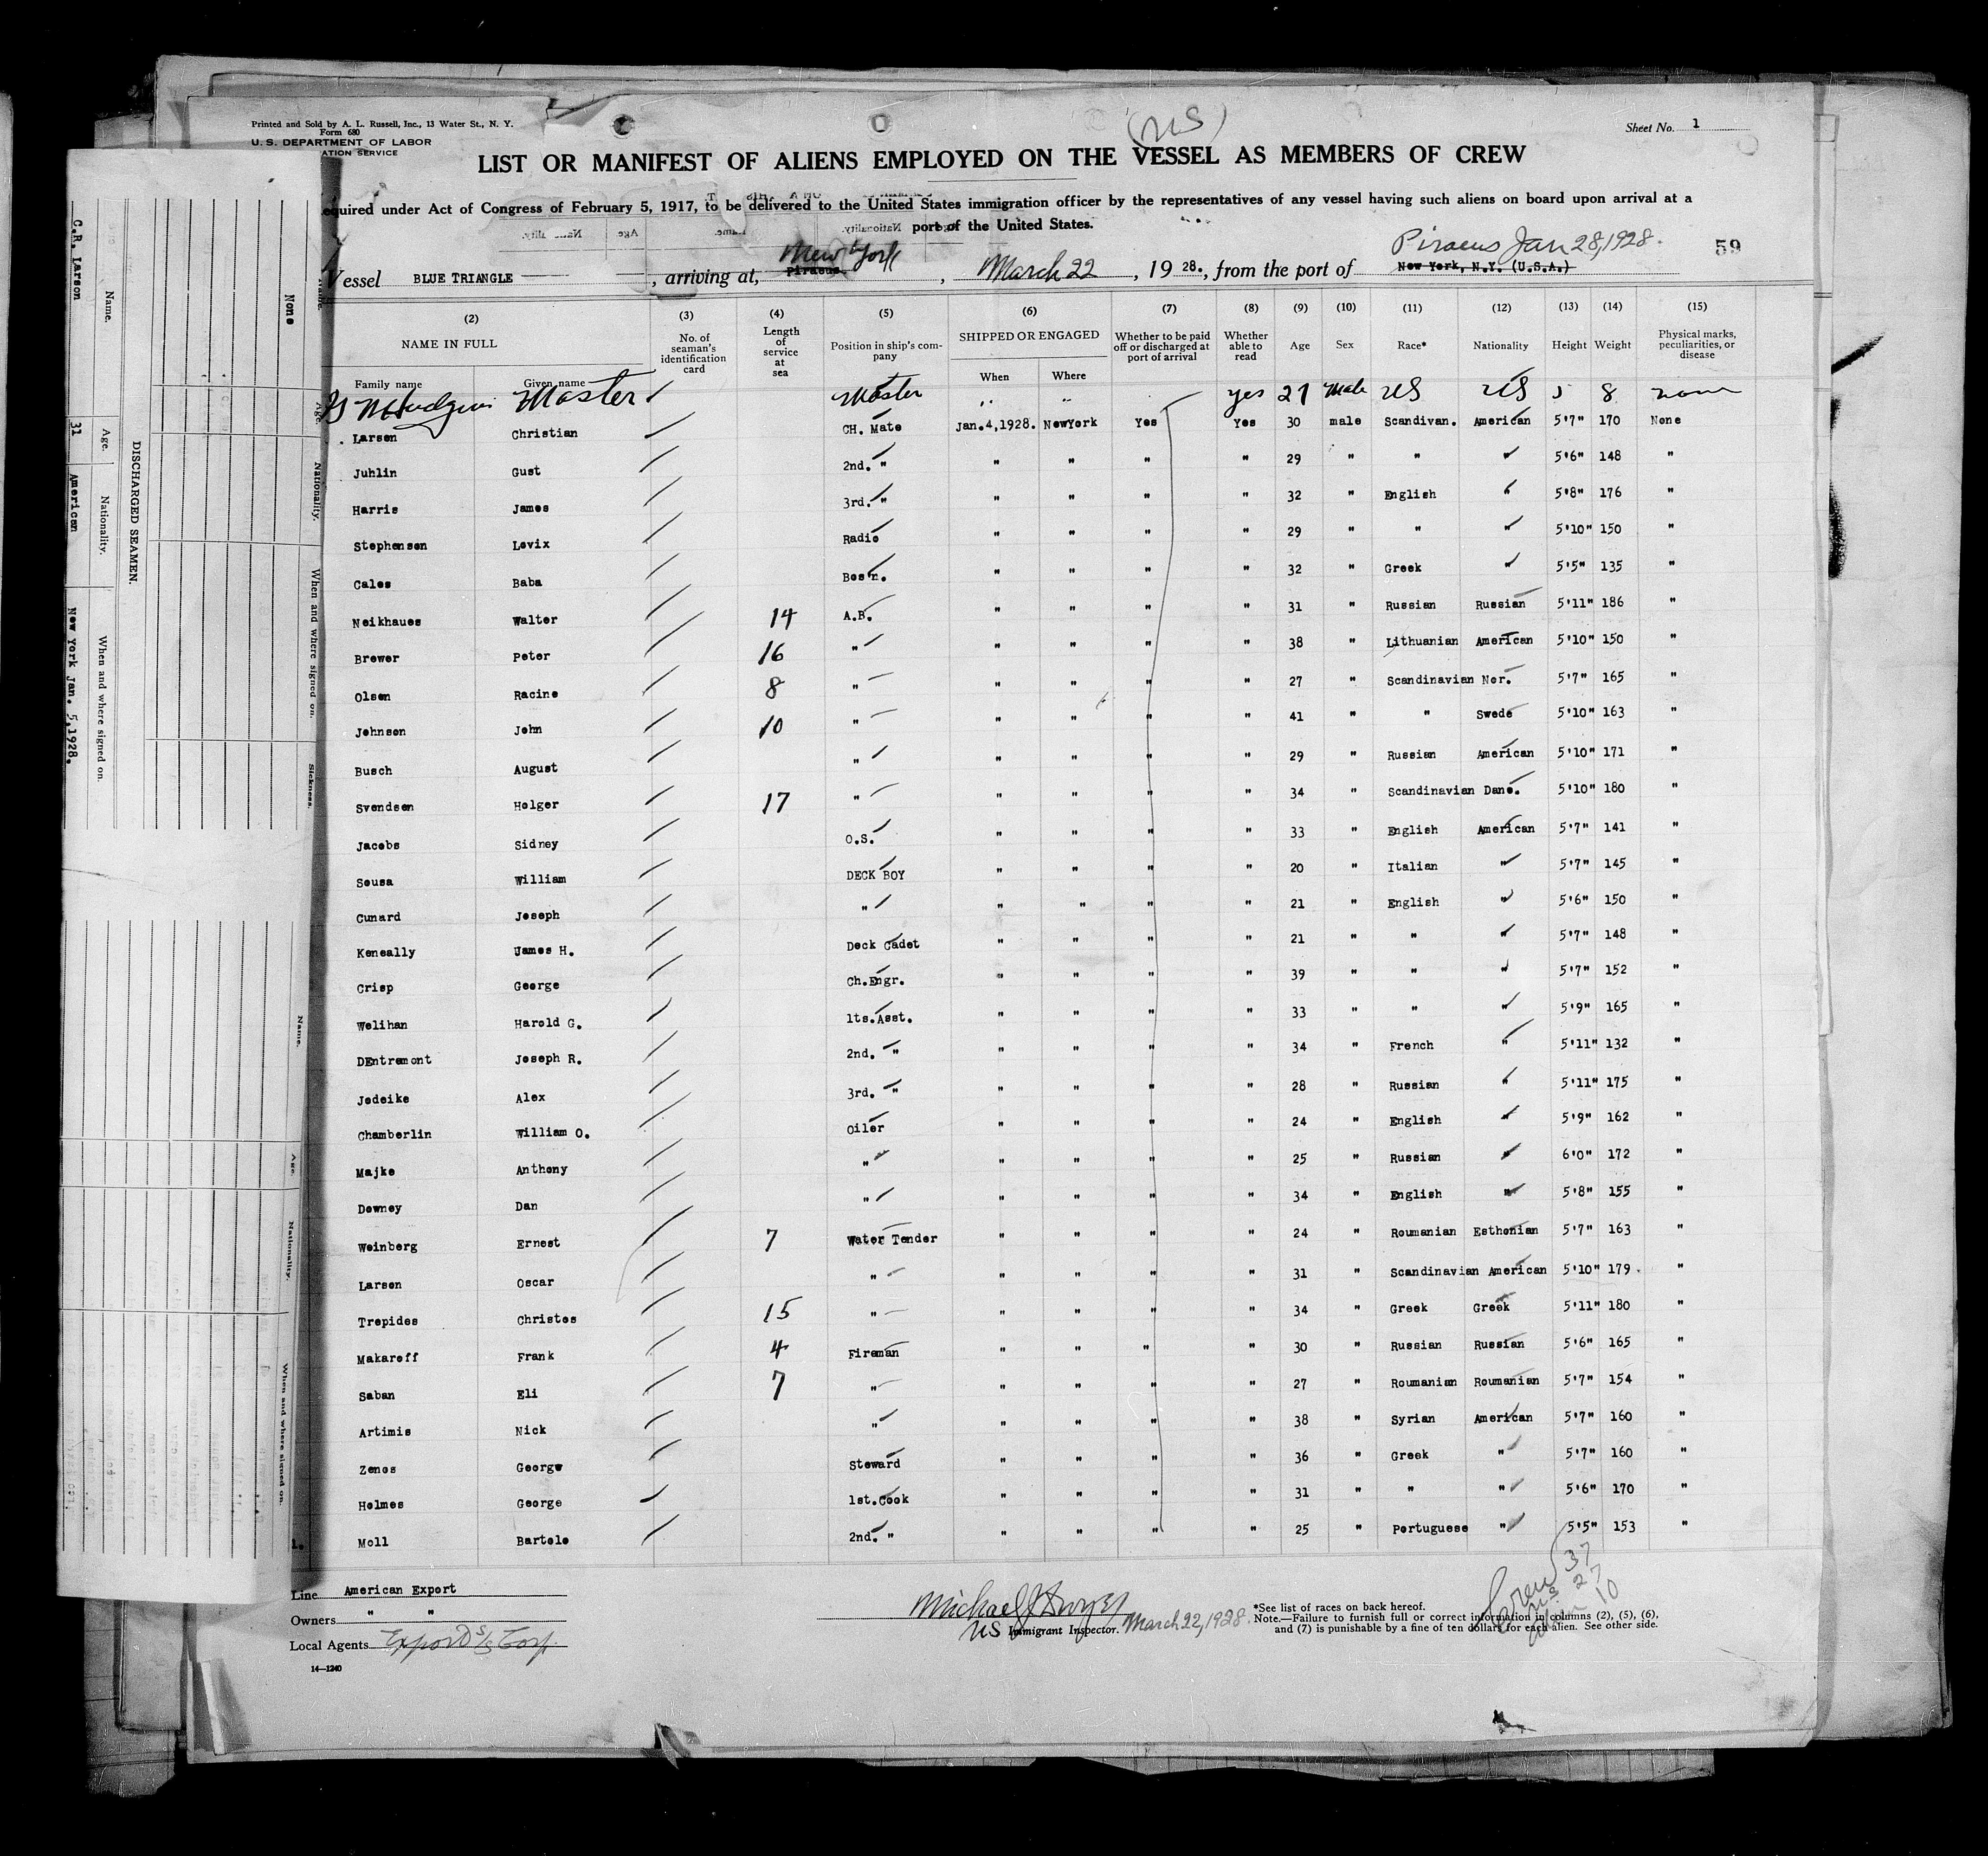 Printed and Sold by A. L. Russell, Inc., 13 Water St., N. Y.
Form 680
U. S. DEPARTMENT OF LABOR
ATION SERVICE
(US)
Sheet No. 1
LIST OR MANIFEST OF ALIENS EMPLOYED ON THE VESSEL AS MEMBERS OF CREW
equired under Act of Congress of February 5, 1917, to be delivered to the United States immigration officer by the representatives of any vessel having such aliens on board upon arrival at a
port of the United States.
New York Piraeus Jan 28, 1928. 59
Vessel BLUE TRIANGLE, arriving at, Piraeus, March 22, 1928., from the port of New York, N.Y. (U.S.A.)
(2) (3) (4) (5) (6) (7) (8) (9) (10) (11) (12) (13) (14) (15)
NAME IN FULL No. of seaman's identification card Length of service at sea Position in ship's company SHIPPED OR ENGAGED Whether to be paid off or discharged at port of arrival Whether able to read Age Sex Race* Nationality Height Weight Physical marks, peculiarities, or disease
Family name Given name When Where
Master Master " " yes 27 Male US US 5 8 none
Larsen Christian CH. Mate Jan.4,1928. NewYork Yes Yes 30 male Scandivan. American 5'7" 170 None
Juhlin Gust 2nd. " " " " " 29 " " " 5'6" 148 "
Harris James 3rd. " " " " " 32 " English " 5'8" 176 "
Stephensen Levix Radio " " " " 29 " " " 5'10" 150 "
Cales Baba Bos'n. " " " " 32 " Greek " 5'5" 135 "
Neikhaues Walter 14 A.B. " " " " 31 " Russian Russian 5'11" 186 "
Brewer Peter 16 " " " " " 38 " Lithuanian American 5'10" 150 "
Olsen Racine 8 " " " " " 27 " Scandinavian Nor. 5'7" 165 "
Johnson John 10 " " " " " 41 " " Swede 5'10" 163 "
Busch August " " " " " 29 " Russian American 5'10" 171 "
Svendsen Holger 17 " " " " " 34 " Scandinavian Dane. 5'10" 180 "
Jacobs Sidney O.S. " " " " 33 " English American 5'7" 141 "
Sousa William DECK BOY " " " " 20 " Italian " 5'7" 145 "
Cunard Joseph " " " " " 21 " English " 5'6" 150 "
Keneally James H. Deck Cadet " " " " 21 " " " 5'7" 148 "
Crisp George Ch.Engr. " " " " 39 " " " 5'7" 152 "
Welihan Harold G. 1ts.Asst. " " " " 33 " " " 5'9" 165 "
DEntremont Joseph R. 2nd. " " " " " 34 " French " 5'11" 132 "
Jedeike Alex 3rd. " " " " " 28 " Russian " 5'11" 175 "
Chamberlin William O. Oiler " " " " 24 " English " 5'9" 162 "
Majke Anthony " " " " " 25 " Russian " 6'0" 172 "
Downey Dan " " " " " 34 " English " 5'8" 155 "
Weinberg Ernest 7 Water Tender " " " " 24 " Roumanian Esthonian 5'7" 163 "
Larsen Oscar " " " " " 31 " Scandinavian American 5'10" 179 "
Trepides Christos 15 " " " " " 34 " Greek Greek 5'11" 180 "
Makareff Frank 4 Fireman " " " " 30 " Russian Russian 5'6" 165 "
Saban Eli 7 " " " " " 27 " Roumanian Roumanian 5'7" 154 "
Artimis Nick " " " " " 38 " Syrian American 5'7" 160 "
Zenos George Steward " " " " 36 " Greek " 5'7" 160 "
Holmes George 1st.Cook " " " " 31 " " " 5'6" 170 "
Moll Bartolo 2nd. " " " " " 25 " Portuguese " 5'5" 153 "
Line American Export
Owners " "
Local Agents Export S/S Corp.
14—1240
Michael J Dwyer
US Immigrant Inspector. March 22, 1928.
*See list of races on back hereof.
Note.—Failure to furnish full or correct information in columns (2), (5), (6),
and (7) is punishable by a fine of ten dollars for each alien. See other side.
Crew 37
US 27
10
DISCHARGED SEAMEN.
Name. Age. Nationality. When and where signed on.
C.R. Larson 31 American New York Jan. 5,1928.
None
Name. Age. Nationality. When and where signed on. Sickness.
Name. Age. Nationality. When and where signed on.